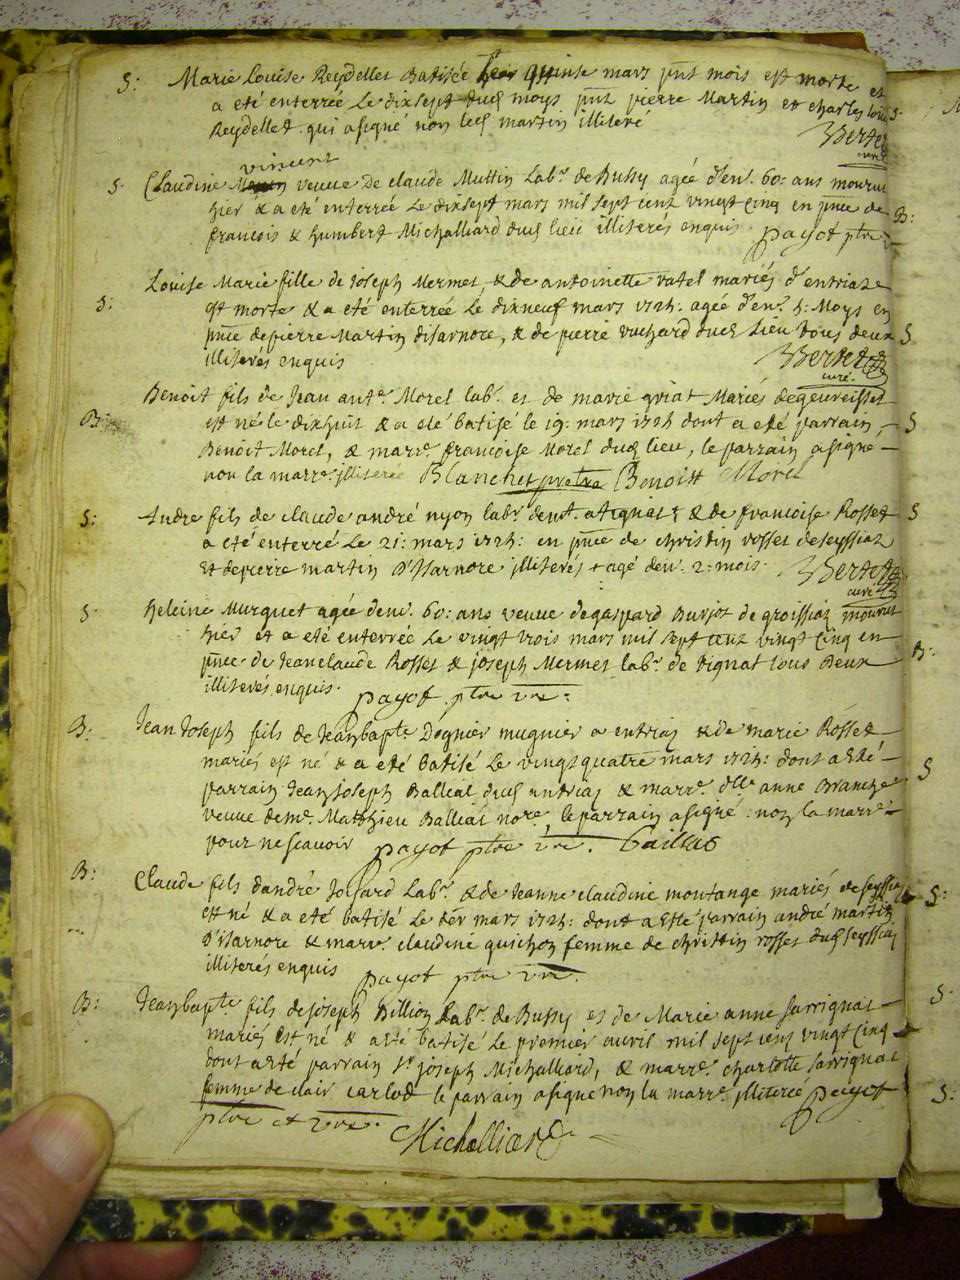 S: Marie Louise Reydellet Batisée quinse mars pnt mois est morte et
a eté enterrée Le dixsept dud moys pnt pierre Martin et charles
Reydellet qui a signé non led martin illiteré
Bertet
curé
vincent
S. Claudine veuve de claude Muttin Labr. de Bussy agée d'env. 60: ans mourut
hier & a eté enterrée Le dixsept mars mil sept cent vingt cinq en pnce de
francois & humbert Michalliard dud lieu illiterés enquis. payot ptre
S: Louise Marie fille de Joseph Mermet, & de antoinette vatel mariés d'entriaz
est morte & a eté enterrée Le dixneuf mars 1725: agée d'env. 5: Moys en
pnce de pierre Martin d'isarnore, & de pierre vuchard dud Lieu tous deux
illiterés enquis
Bertet
curé.
B: Benoit fils de Jean ante. Morel lab. et de marie griat Mariés degeureisset
est né le dixhuit & a eté batisé le 19: mars 1725 dont a eté parrain
Benoit Morel, & marre. francoise Morel dud lieu, le parrain a signé
non la marre. illiterée Blanchet pretre Benoist Morel
S: Andre fils de claude andré nyon labr. & de francoise Rosset
a eté enterré Le 21: mars 1725: en pnce de christin rosset de seyssiat
Et de pierre martin D'Isarnore illiterés agé denv. 2: mois. Bertet
curé
S: heleine Murquet agée denv. 60: ans veuve degaspard Burjot de groissiat mourut
hier et a eté enterrée Le vingt trois mars mil sept cent vingt cinq en
pnce de Jeanclaude Rosset & joseph Mermet labr. de tignat tous Deux
illiterés enquis. payot ptre vre:
B: Jean Joseph fils de Jeanbapte Dognier mugnier a entriaz & de marie Rosset
mariés est né & a eté batisé Le vingtquatre mars 1725: dont a esté
parrain Jeanjoseph Balleat dud entriaz & marr. dlle anne Branche
veuve deme. Matthieu Balliat nore, le parrain a signé non la marre.
pour ne scavoir payot ptre vre.
B: Claude fils d'andré Labr. & de Jeanne claudine montange mariés de seyssiat
est né & a eté batisé Le der mars 1725: dont a esté parrain andré martin
D'isarnore & marr. claudine guichon femme de christin rosset dud seyssiat
illiterés enquis payot ptre vre.
B: Jeanbapte. fils dejoseph Billion Labr. de Bussy et de Marie anne sarrignat
mariés est né & a eté batisé Le premier avril mil sept cent vingt cinq
dont a eté parrain Sr. joseph Michalliard, & marr. charlotte sarrignat
femme de clair carlod le parrain a signé non la marr. illiterée payot
ptre et vre.
Michalliard